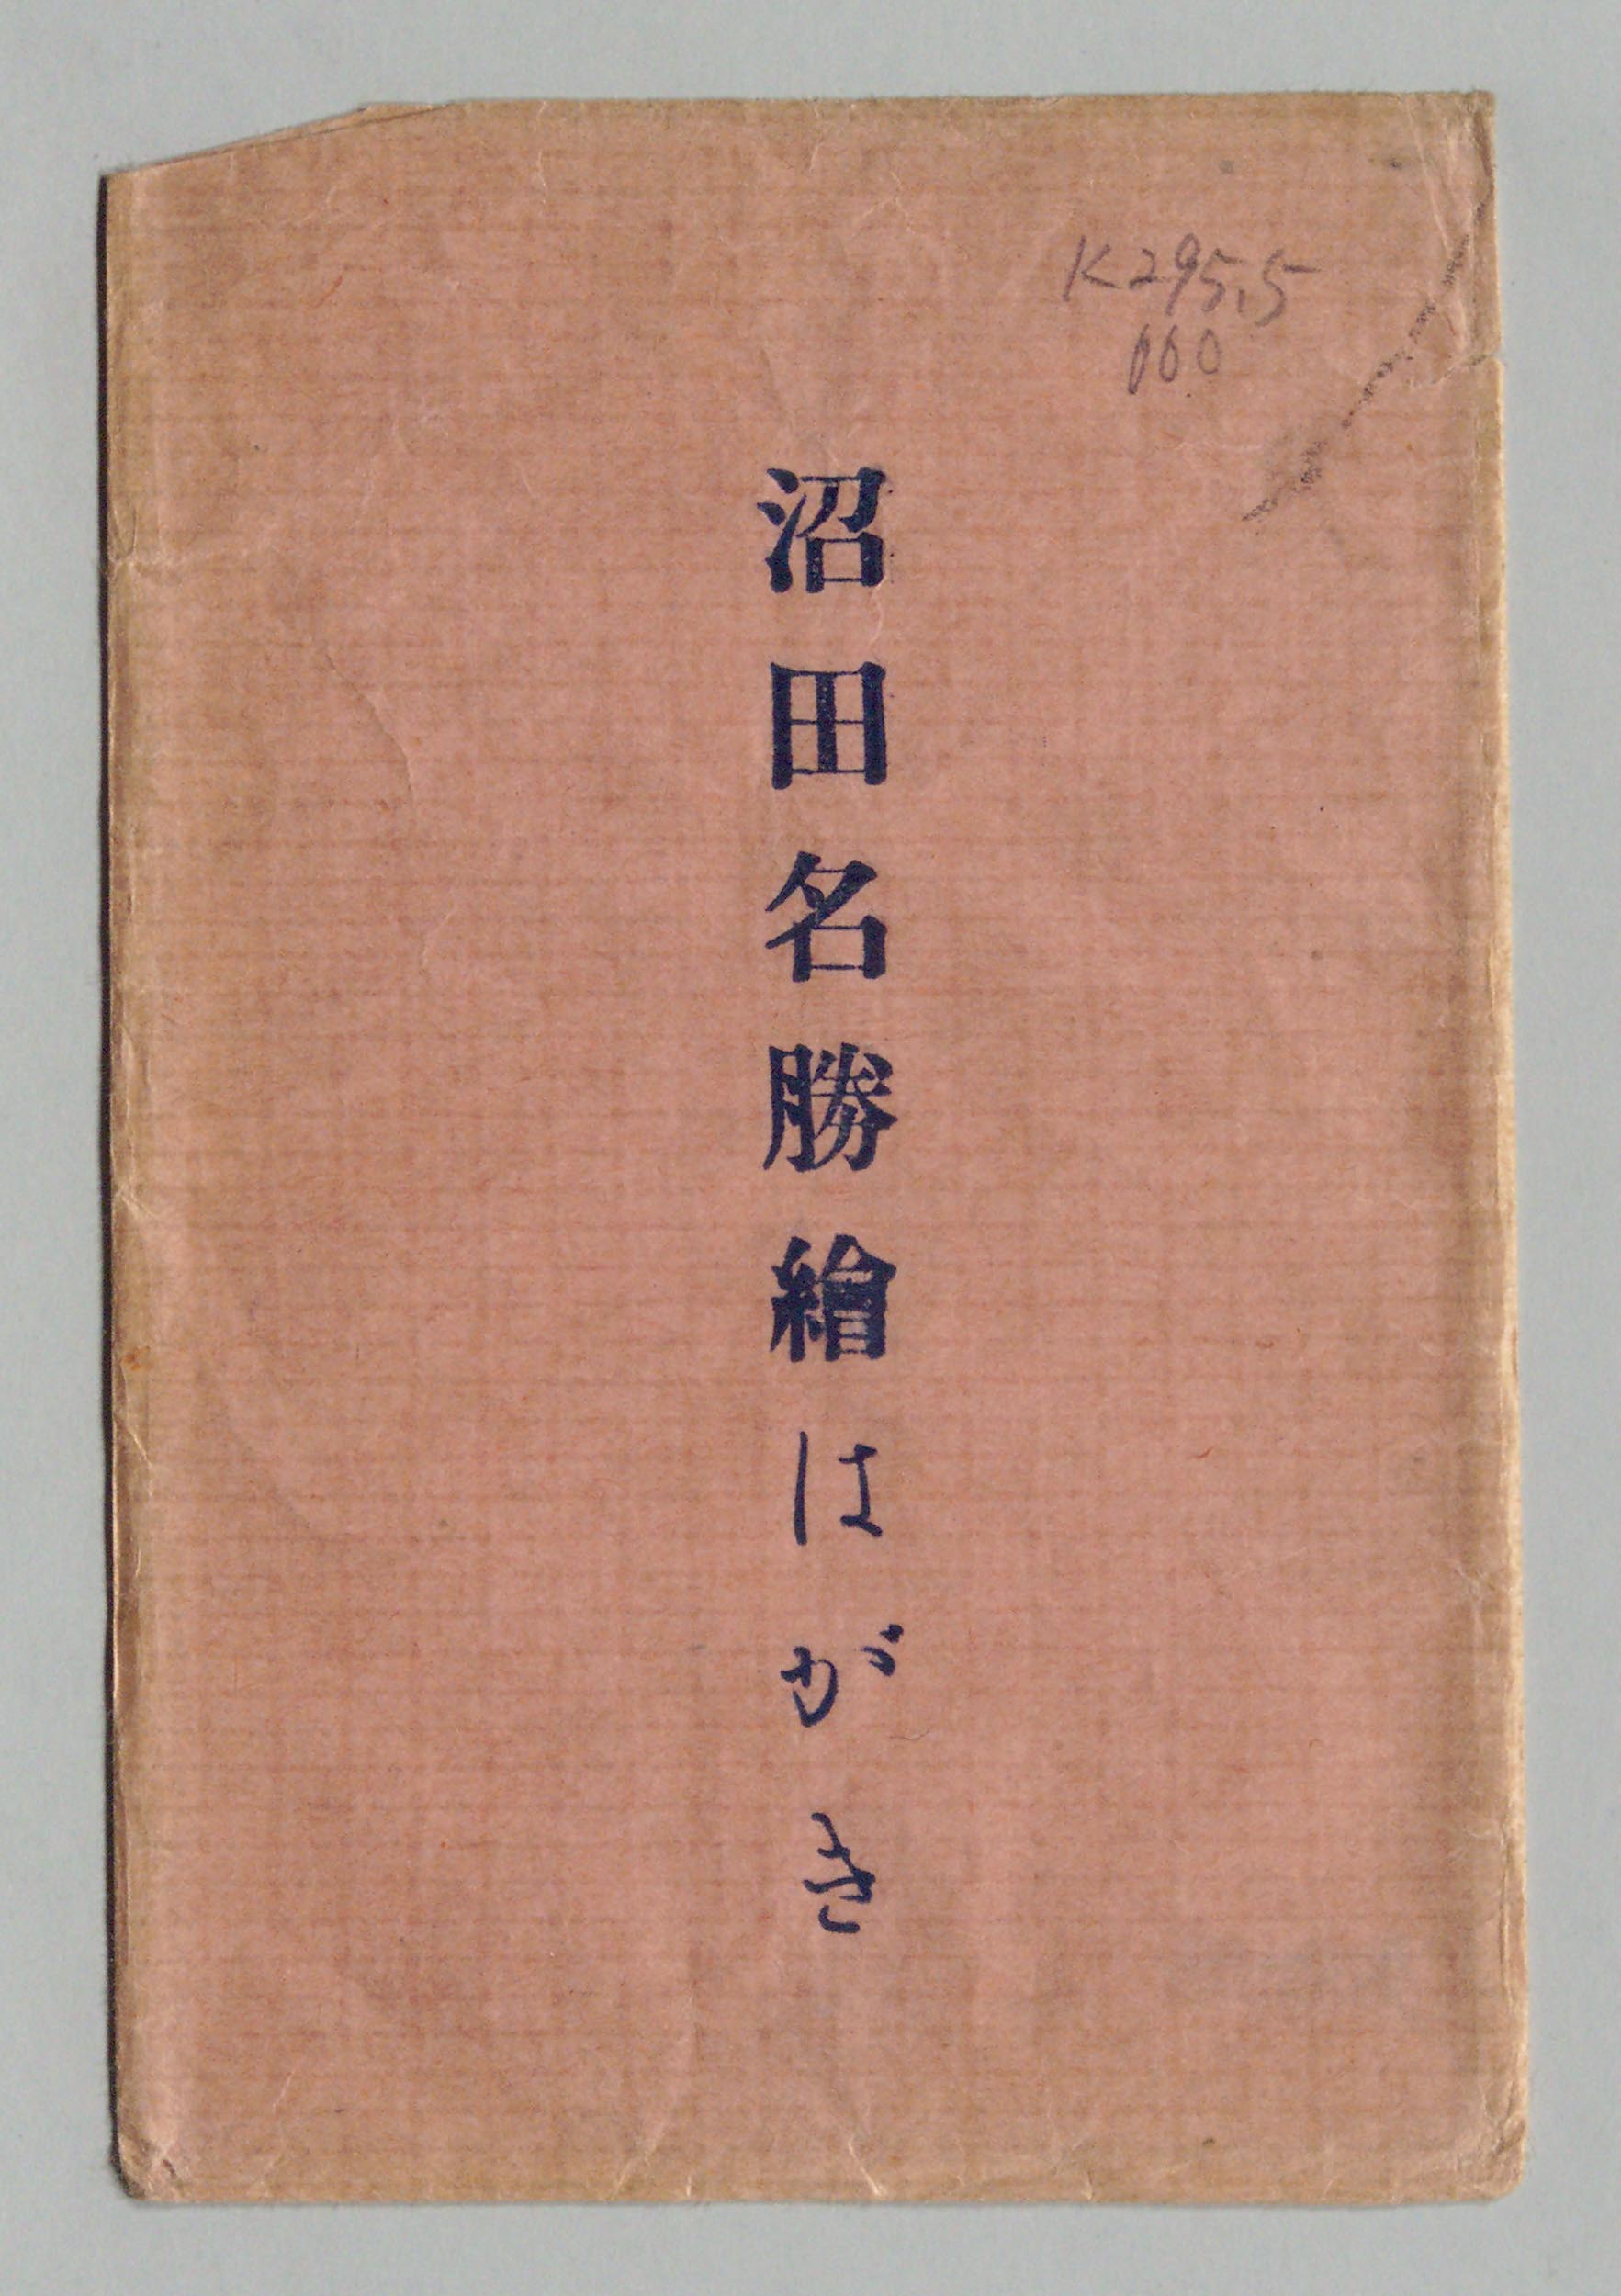 K295.5
100
沼田名勝繪はがき